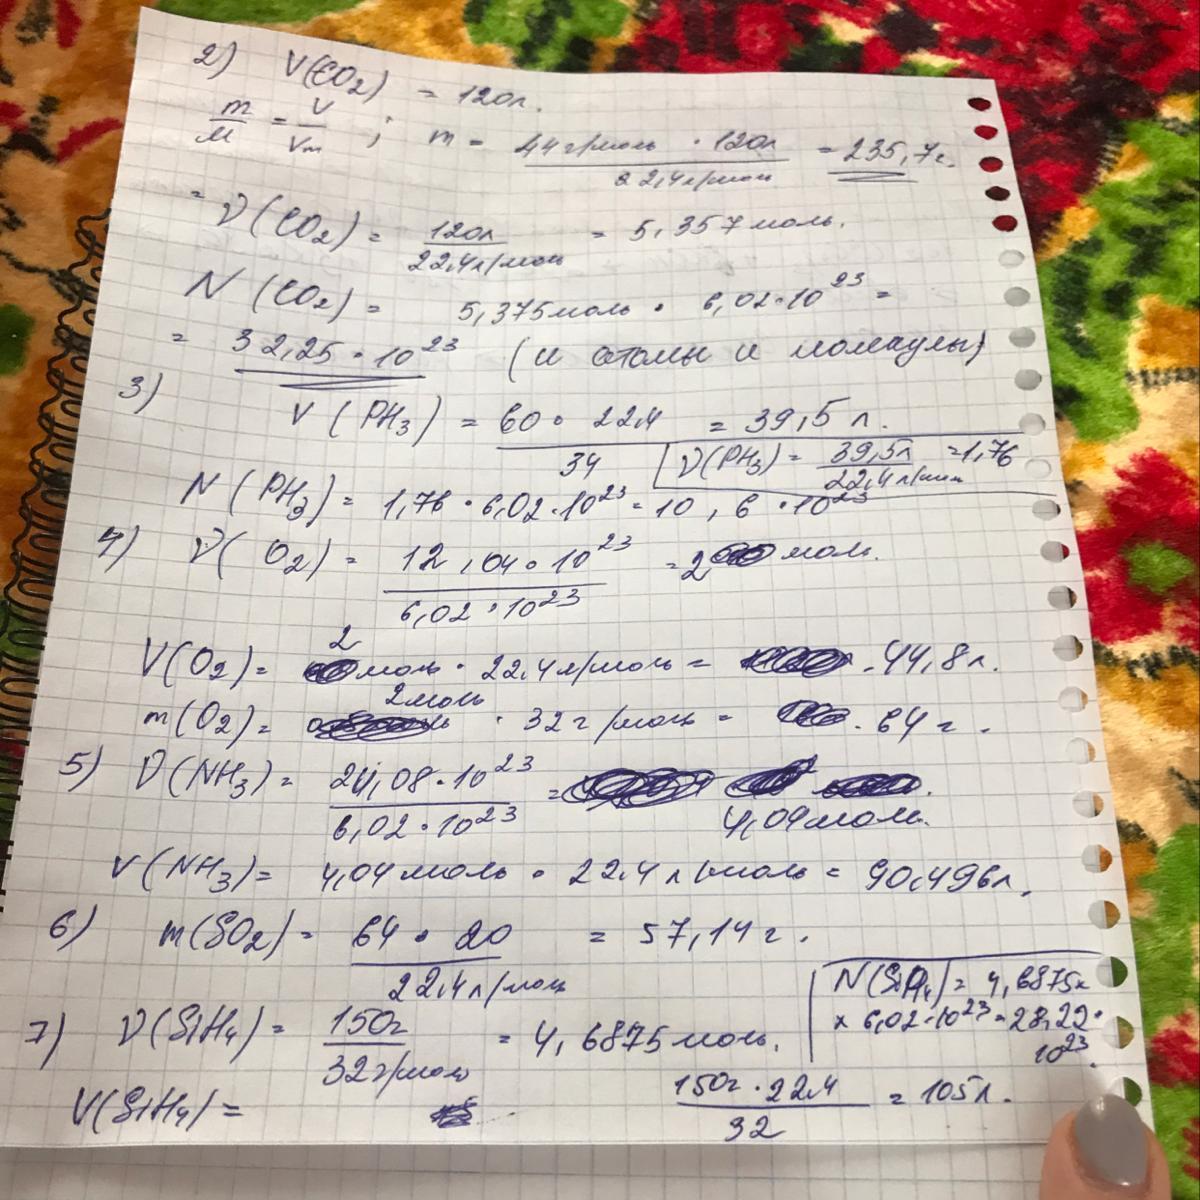 2) V(CO2) = 120л.
m/M = V/Vm ; m = 44г/моль · 120л / 22,4л/моль = 235,7г.
ν(CO2) = 120л / 22,4л/моль = 5,357 моль.
N(CO2) = 5,375 моль · 6,02·10^23 =
= 32,25·10^23 (и атомы и молекулы)
3) V(PH3) = 60 · 22,4 / 34 = 39,5 л.
ν(PH3) = 39,5л / 22,4л/моль = 1,76
N(PH3) = 1,76 · 6,02·10^23 = 10,6·10^23
4) ν(O2) = 12,04·10^23 / 6,02·10^23 = 2 моль.
V(O2) = 2 моль · 22,4л/моль = 44,8л.
m(O2) = 2моль · 32г/моль = 64г.
5) ν(NH3) = 24,08·10^23 / 6,02·10^23 = 4,04моль.
V(NH3) = 4,04моль · 22,4л/моль = 90,496л.
6) m(SO2) = 64 · 20 / 22,4л/моль = 57,14г.
7) ν(SiH4) = 150г / 32г/моль = 4,6875моль.
N(SiH4) = 4,6875х
х 6,02·10^23 = 28,22·
10^23.
V(SiH4) = 150г · 22,4 / 32 = 105л.